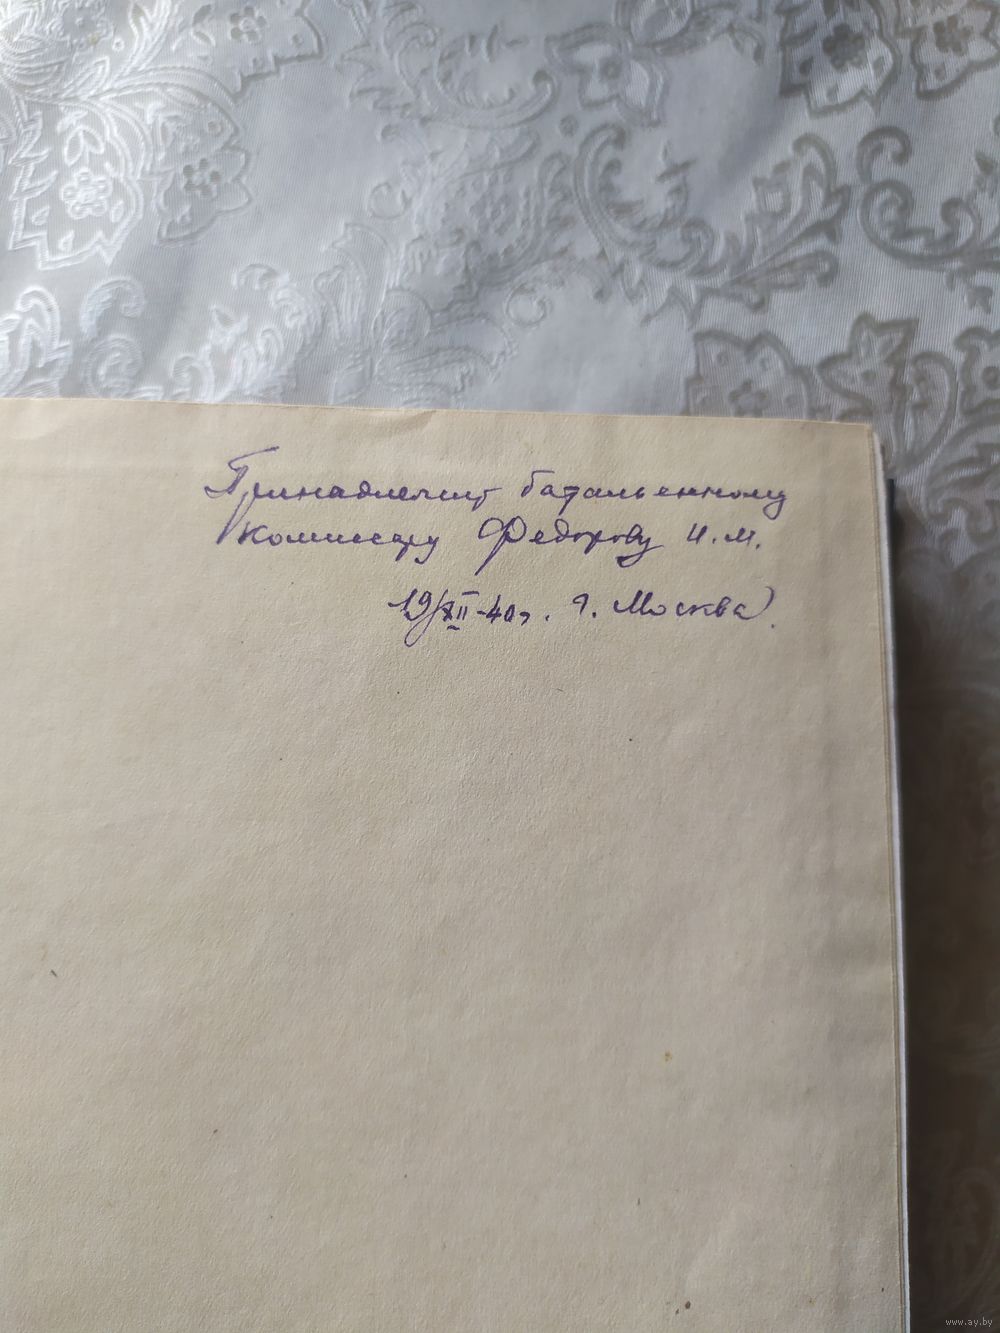 Принадлежит батальенному
комиссару Федорову И.М.
19/XII-40г. г. Москва.
www.ay.by